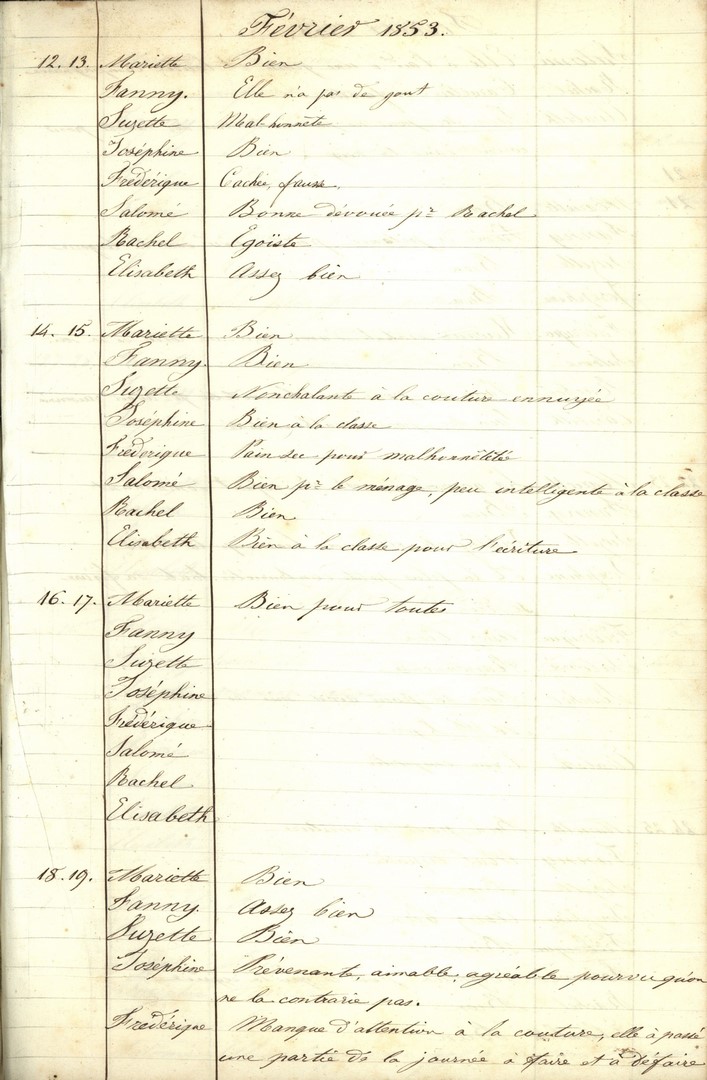 Février 1853.
12. 13. Mariette Bien
Fanny. Elle n'a pas de gout
Suzette Mal-honnête
Joséphine Bien
Frédérique Cachée, fausse.
Salomé Bonne dévouée pr Rachel
Rachel Egoïste
Elisabeth Assez bien
14. 15. Mariette Bien
Fanny. Bien
Suzette Nonchalante à la couture ennuyée
Joséphine Bien à la classe
Frédérique Pain sec pour malhonnêtété
Salomé Bien pr le ménage, peu intelligente à la classe
Rachel Bien
Elisabeth Bien à la classe pour l'écriture
16. 17. Mariette Bien pour toutes
Fanny
Suzette
Joséphine
Frédérique
Salomé
Rachel
Elisabeth
18. 19. Mariette Bien
Fanny. Assez bien
Suzette Bien
Joséphine Prévenante, aimable, agréable pourvu qu'on
ne la contrarie pas.
Frédérique Manque d'attention à la couture, elle à passé
une partie de la journée à faire et à défaire